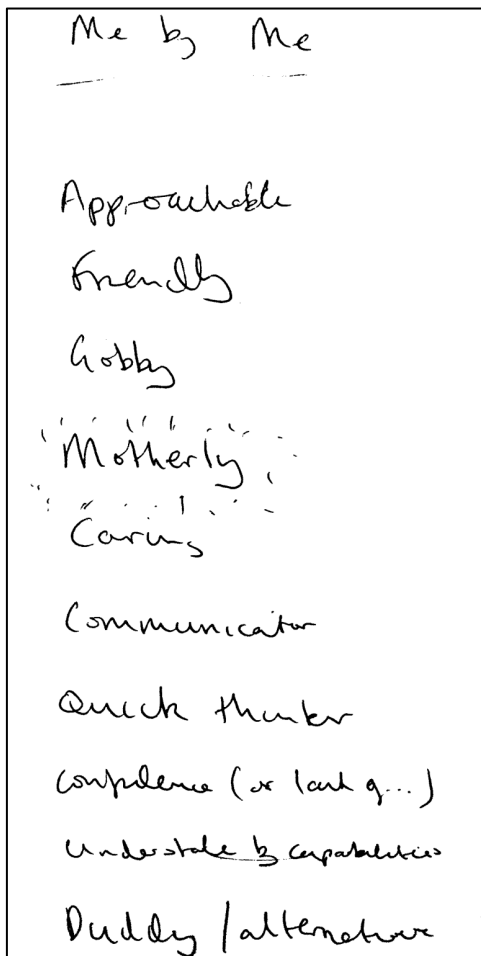 Me by Me
Approachable
Friendly
Gobby
Motherly
Caring
Communicator
Quick thinker
Confidence (or lack of...)
Understate capabilities
Duddy / alternative